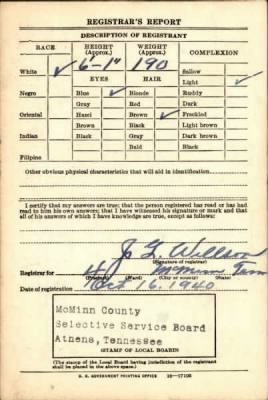 REGISTRAR'S REPORT
DESCRIPTION OF REGISTRANT
RACE HEIGHT (Approx.) WEIGHT (Approx.) COMPLEXION
6'-1" 190
White ✓ Sallow
EYES HAIR Light ✓
Negro Blue ✓ Blonde Ruddy
Gray Red Dark
Oriental Hazel Brown ✓ Freckled
Brown Black Light brown
Indian Black Gray Dark brown
Bald Black
Filipino
Other obvious physical characteristics that will aid in identification
I certify that my answers are true; that the person registered has read or has had
read to him his own answers; that I have witnessed his signature or mark and that
all of his answers of which I have knowledge are true, except as follows:
(Signature of registrar)
Registrar for McMinn Tenn
(Precinct) (Ward) (City or county) (State)
Date of registration Oct 16, 1940
McMinn County
Selective Service Board
Athens, Tennessee
(STAMP OF LOCAL BOARD)
(The stamp of the Local Board having jurisdiction of the registrant
shall be placed in the above space.)
U. S. GOVERNMENT PRINTING OFFICE 16—17105